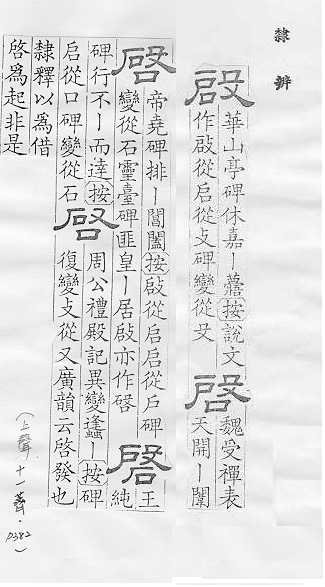 隸辨
啟
華山亭碑休嘉｜薹按說文
作啟從启從攴碑變從殳
啟
魏受禪表
天開｜闡
啓
帝堯碑排｜閶闔按啟從启启從戶碑
變從石靈臺碑匪皇｜居啟亦作啓
啓
王
純
碑行不｜而達按
启從口碑變從石
啓
周公禮殿記異變逢｜按碑
復變攴從又廣韻云啓發也
隸釋以爲借
啓爲起非是
(上聲.十一薺.p382)